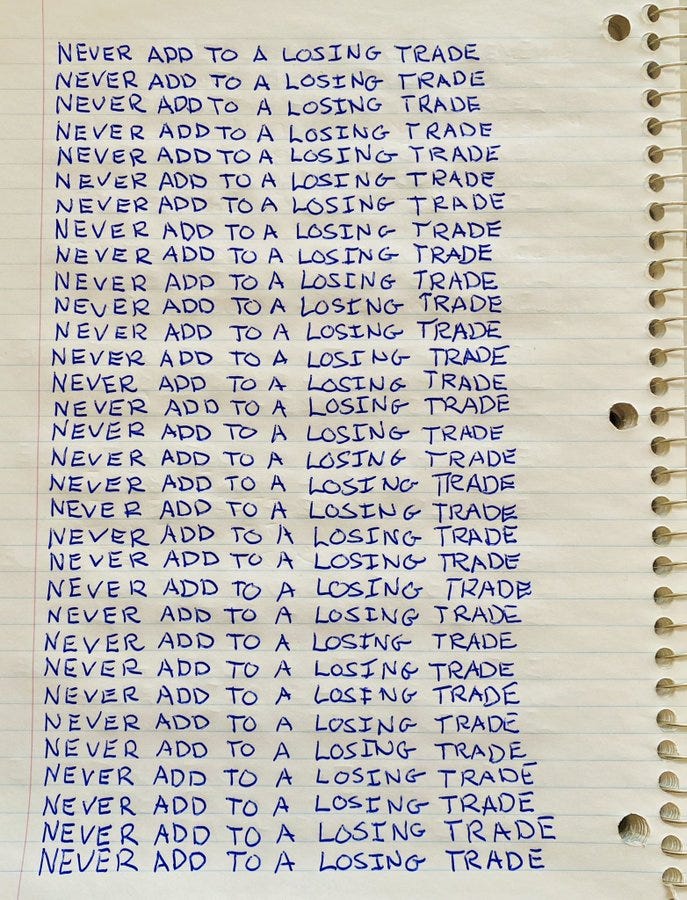 NEVER ADD TO A LOSING TRADE
NEVER ADD TO A LOSING TRADE
NEVER ADD TO A LOSING TRADE
NEVER ADD TO A LOSING TRADE
NEVER ADD TO A LOSING TRADE
NEVER ADD TO A LOSING TRADE
NEVER ADD TO A LOSING TRADE
NEVER ADD TO A LOSING TRADE
NEVER ADD TO A LOSING TRADE
NEVER ADD TO A LOSING TRADE
NEVER ADD TO A LOSING TRADE
NEVER ADD TO A LOSING TRADE
NEVER ADD TO A LOSING TRADE
NEVER ADD TO A LOSING TRADE
NEVER ADD TO A LOSING TRADE
NEVER ADD TO A LOSING TRADE
NEVER ADD TO A LOSING TRADE
NEVER ADD TO A LOSING TRADE
NEVER ADD TO A LOSING TRADE
NEVER ADD TO A LOSING TRADE
NEVER ADD TO A LOSING TRADE
NEVER ADD TO A LOSING TRADE
NEVER ADD TO A LOSING TRADE
NEVER ADD TO A LOSING TRADE
NEVER ADD TO A LOSING TRADE
NEVER ADD TO A LOSING TRADE
NEVER ADD TO A LOSING TRADE
NEVER ADD TO A LOSING TRADE
NEVER ADD TO A LOSING TRADE
NEVER ADD TO A LOSING TRADE
NEVER ADD TO A LOSING TRADE
NEVER ADD TO A LOSING TRADE